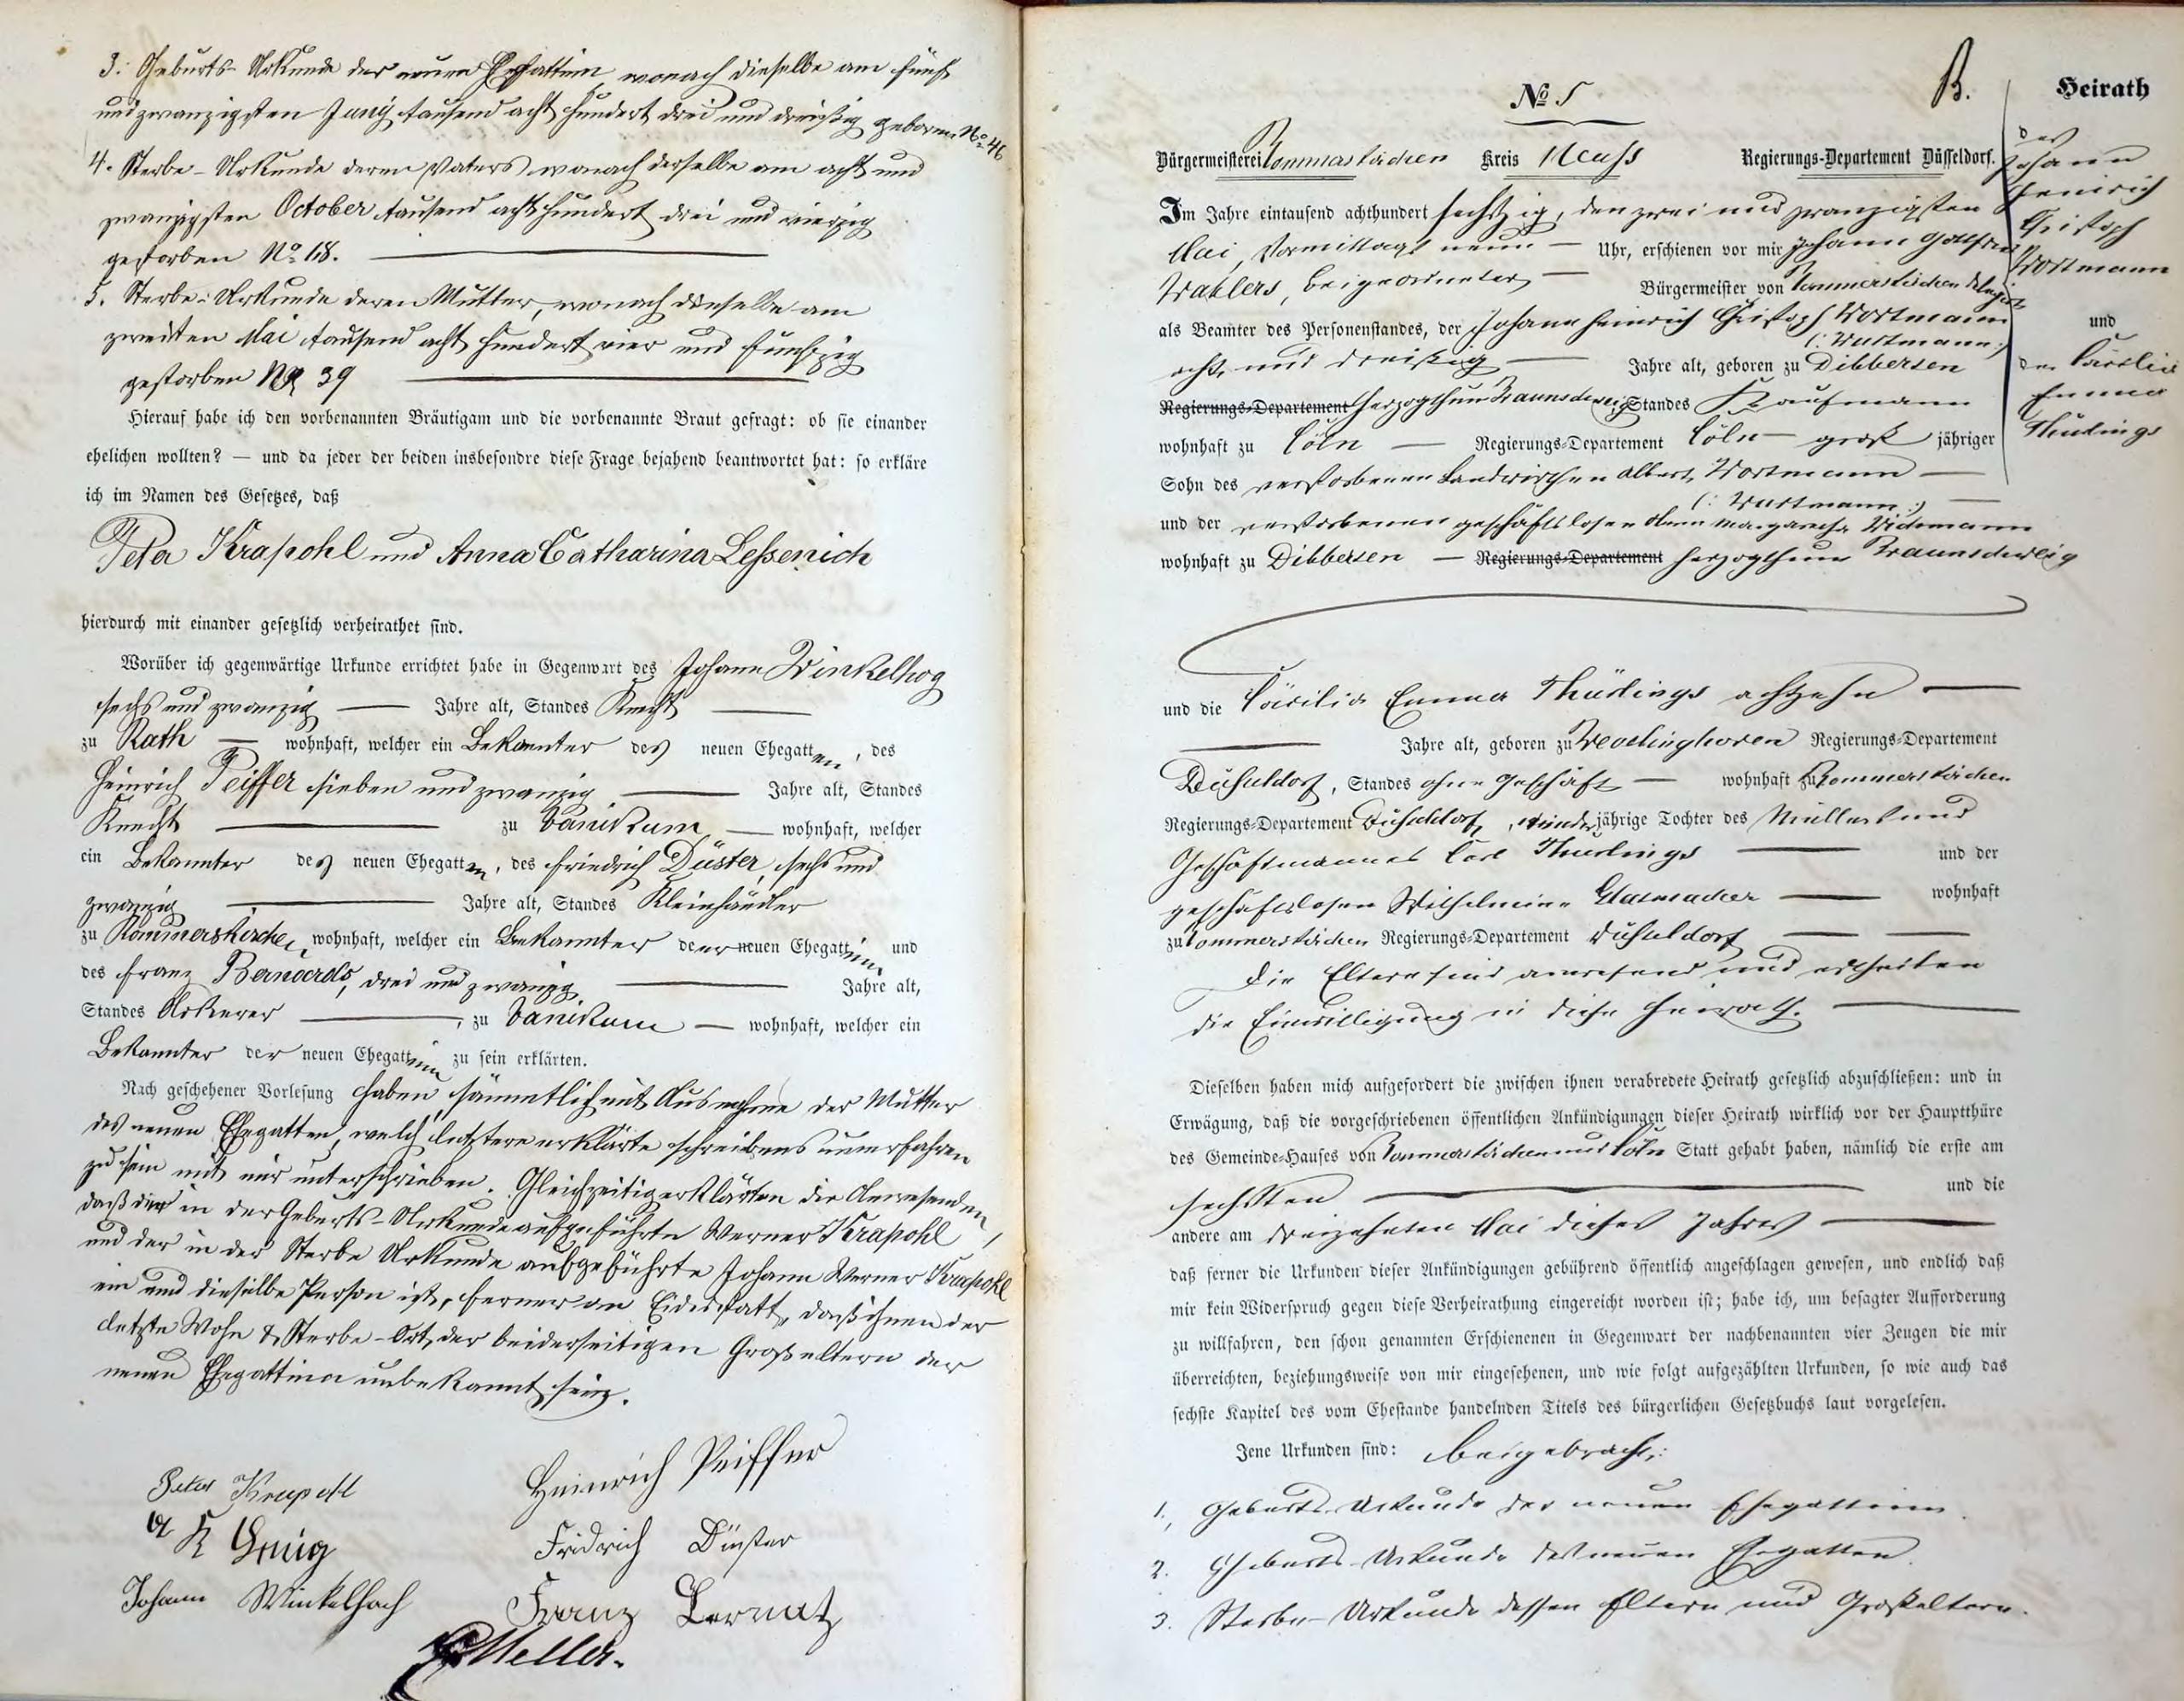 3. Geburts-Urkunde der neuen Ehegattinn, wonach dieselbe am fünf
und zwanzigsten Juny tausend acht hundert drei und dreißig geboren No 46
4. Sterbe-Urkunde deren Vaters wonach derselbe am acht und
zwanzigsten October tausend acht hundert drei und vierzig
gestorben No 68.
5. Sterbe-Urkunde deren Mutter, wonach dieselbe am
zweiten Mai tausend acht hundert vier und fünfzig
gestorben No 39
Hierauf habe ich den vorbenannten Bräutigam und die vorbenannte Braut gefragt: ob sie einander
ehelichen wollten? — und da jeder der beiden insbesondre diese Frage bejahend beantwortet hat: so erkläre
ich im Namen des Gesetzes, daß
Peter Krapohl und Anna Catharina Lessenich
hierdurch mit einander gesetzlich verheirathet sind.
Worüber ich gegenwärtige Urkunde errichtet habe in Gegenwart des Johann Winkelhog
sechs und zwanzig — Jahre alt, Standes Knecht
zu Rath — wohnhaft, welcher ein Bekannter des neuen Ehegatten, des
Heinrich Peiffer sieben und zwanzig — Jahre alt, Standes
Knecht — zu Vanikum — wohnhaft, welcher
ein Bekannter des neuen Ehegatten, des Friedrich Düster, sechs und
zwanzig — Jahre alt, Standes Kleinhändler
zu Rommerskirchen wohnhaft, welcher ein Bekannter der neuen Ehegattinn und
des Franz Bernards, drei und zwanzig — Jahre alt,
Standes Ackerer —, zu Vanikum — wohnhaft, welcher ein
Bekannter der neuen Ehegattinn zu sein erklärten.
Nach geschehener Vorlesung haben sämmtlich mit Ausnahme der Mutter
des neuen Ehegatten, welch letztere erklärte schreibens unerfahren
zu sein mit mir unterschrieben. Gleichzeitig erklärten die Anwesenden,
daß der in der Geburts-Urkunde aufgeführte Werner Krapohl,
und der in der Sterbe Urkunde aufgeführte Johann Werner Krapohl
ein und dieselbe Person ist, ferner an Eidesstatt, daß ihnen der
letzte Wohn & Sterbe-Ort der beiderseitigen Großeltern der
neuen Ehegattinn unbekannt sein.
Peter Krapohl
Heinrich Peiffer
Fridrich Düster
Johann Winkelhoch
Franz Bernatz
Meller.
No 5
B.
Heirath
Bürgermeisterei Rommerskirchen Kreis Neuss Regierungs-Departement Düsseldorf.
des
Johann
Heinrich
Christoph
Wortmann
und
der Cäcilia
Emma
Thürlings
Im Jahre eintausend achthundert sechszig, den zwei und zwanzigsten
Mai, Vormittags neun — Uhr, erschienen vor mir Johann Gottfried
Wahlers, Beigeordneter — Bürgermeister von Rommerskirchen delegirt
als Beamter des Personenstandes, der Johann Heinrich Christoph Wortmann
(: Wurtmann :)
acht und dreißig — Jahre alt, geboren zu Dibbersen
Regierungs-Departement Herzogthum Braunschweig Standes Kaufmann
wohnhaft zu Cöln — Regierungs-Departement Cöln — groß jähriger
Sohn des verstorbenen Landwirthen Albert Wortmann —
(: Wurtmann :) —
und der verstorbenen geschäftslosen Anna Margaretha Wichmann
wohnhaft zu Dibbersen — Regierungs-Departement Herzogthum Braunschweig
und die Cäcilia Emma Thürlings achtzehn —
Jahre alt, geboren zu Wevelinghoven Regierungs-Departement
Düsseldorf, Standes ohne Geschäft — wohnhaft zu Rommerskirchen
Regierungs-Departement Düsseldorf, minderjährige Tochter des Müllers und
Geschäftmannes Carl Thürlings — und der
geschäftslosen Wilhelmine Glasmacher — wohnhaft
zu Rommerskirchen Regierungs-Departement Düsseldorf — —
die Eltern sind anwesend und ertheilen
die Einwilligung in diese Heirath. —
Dieselben haben mich aufgefordert die zwischen ihnen verabredete Heirath gesetzlich abzuschließen: und in
Erwägung, daß die vorgeschriebenen öffentlichen Ankündigungen dieser Heirath wirklich vor der Hauptthüre
des Gemeinde-Hauses von Rommerskirchen und Cöln Statt gehabt haben, nämlich die erste am
sechsten — und die
andere am dreizehnten Mai dieses Jahres —
daß ferner die Urkunden dieser Ankündigungen gebührend öffentlich angeschlagen gewesen, und endlich daß
mir kein Widerspruch gegen diese Verheirathung eingereicht worden ist; habe ich, um besagter Aufforderung
zu willfahren, den schon genannten Erschienenen in Gegenwart der nachbenannten vier Zeugen die mir
überreichten, beziehungsweise von mir eingesehenen, und wie folgt aufgezählten Urkunden, so wie auch das
sechste Kapitel des vom Ehestande handelnden Titels des bürgerlichen Gesetzbuchs laut vorgelesen.
Jene Urkunden sind: beigebracht:
1., Geburts-Urkunde der neuen Ehegattinn.
2. Geburts-Urkunde des neuen Ehegatten.
3. Sterbe-Urkunde dessen Eltern und Großeltern.